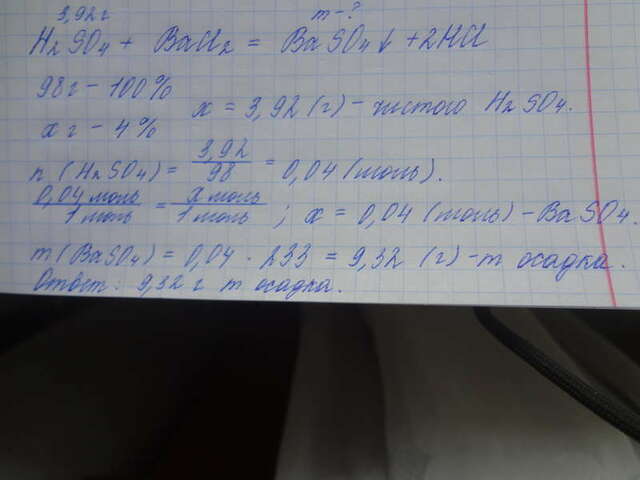 3,92 г m - ?
H₂SO₄ + BaCl₂ = BaSO₄↓ + 2HCl
98 г - 100%
x = 3,92 (г) - чистого H₂SO₄.
x г - 4%
n (H₂SO₄) = 3,92/98 = 0,04 (моль).
0,04 моль/1 моль = x моль/1 моль ; x = 0,04 (моль) - BaSO₄.
m (BaSO₄) = 0,04 · 233 = 9,32 (г) - m осадка.
Ответ: 9,32 г m осадка.